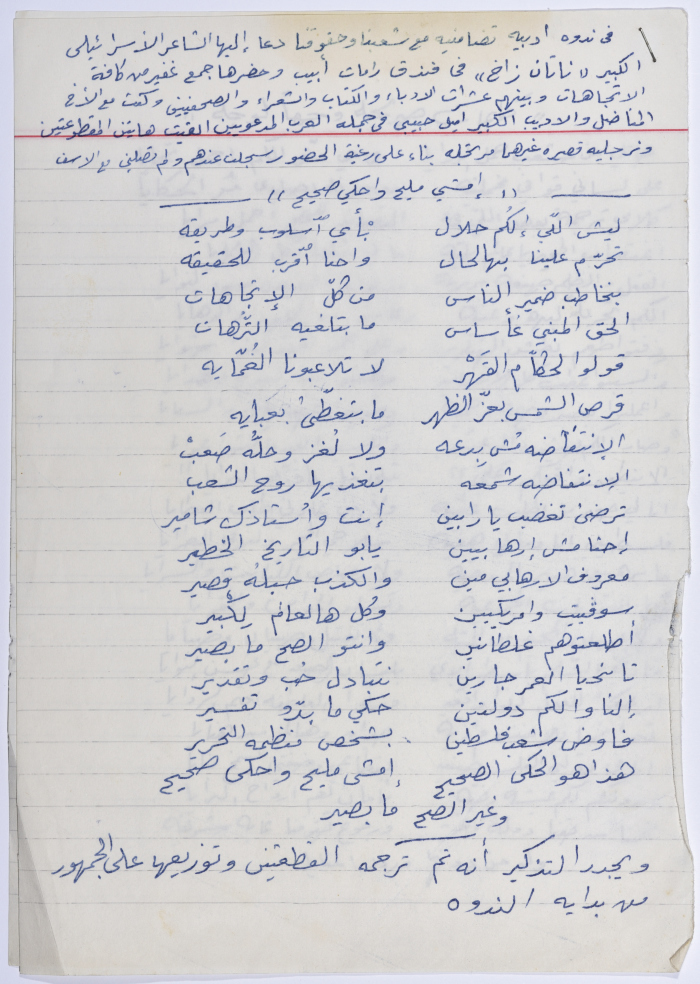 في ندوه ادبيه تضامنيه مع شعبنا وحقوقنا دعا إليها الشاعر الاسرائيلي
الكبير "ناتان زاخ" في فندق رامات أبيب وحضرها جمع غفير من كافة
الاتجاهات وبينهم عشرات الادباء والكتاب والشعراء والصحفيين وكنت مع الأخ
المناضل والاديب الكبير اميل حبيبي في جمله العرب المدعويين القيت هاتين المقطوعتين
وزجليه قصيره غيرهما مرتجله بناء على رغبة الحضور سجلت عندهم ولم تصلني مع الاسف
" إمشي مليح واحكي صحيح "
ليش اللّي إلكُم حلال بْأي أسلوب وطريقه
تحرّم علينا بهالحال واحنا أقرب للحقيقه
بنخاطب ضمير الناس من كلّ الإتجاهات
الحق المبني عَأساس ما بتلغيه التُّرهات
قولوا لحكّام القَهْر لا تلاعبونا الغُمّايه
قرص الشمس بعزّ الظهر ما بتغطّىْ بعَبايه
الإنتفاضه مُش بِدعه ولا لُغز وحلُّه صَعبْ
الإنتفاضه شمعه بتغذيها روح الشعب
ترضىْ تغضب يا رابين إنت وأستاذك شامير
إحنا مش إرهابيين يابو التاريخ الخطير
معروف الارهابي مين والكذب حبلُه قصير
سوڤييت وامريكيين وكُل هالعالم لِكْبير
أطلعتوهم غلطانين وانتو الصح ما بصير
تا نحيا العمر جارين نتبادل حُب وتقدير
إلنا والكم دولتين حكي ما بدّو تفسير
فاوض شعب فلسطين بشخص منظمه التحرير
هذا هو الحكي الصحيح إمشي مليح واحكي صحيح
وغير الصح ما بصير
ويجدر التذكير أنه تم ترجمه القطعتين وتوزيعها على الجمهور
من بدايه الندوه